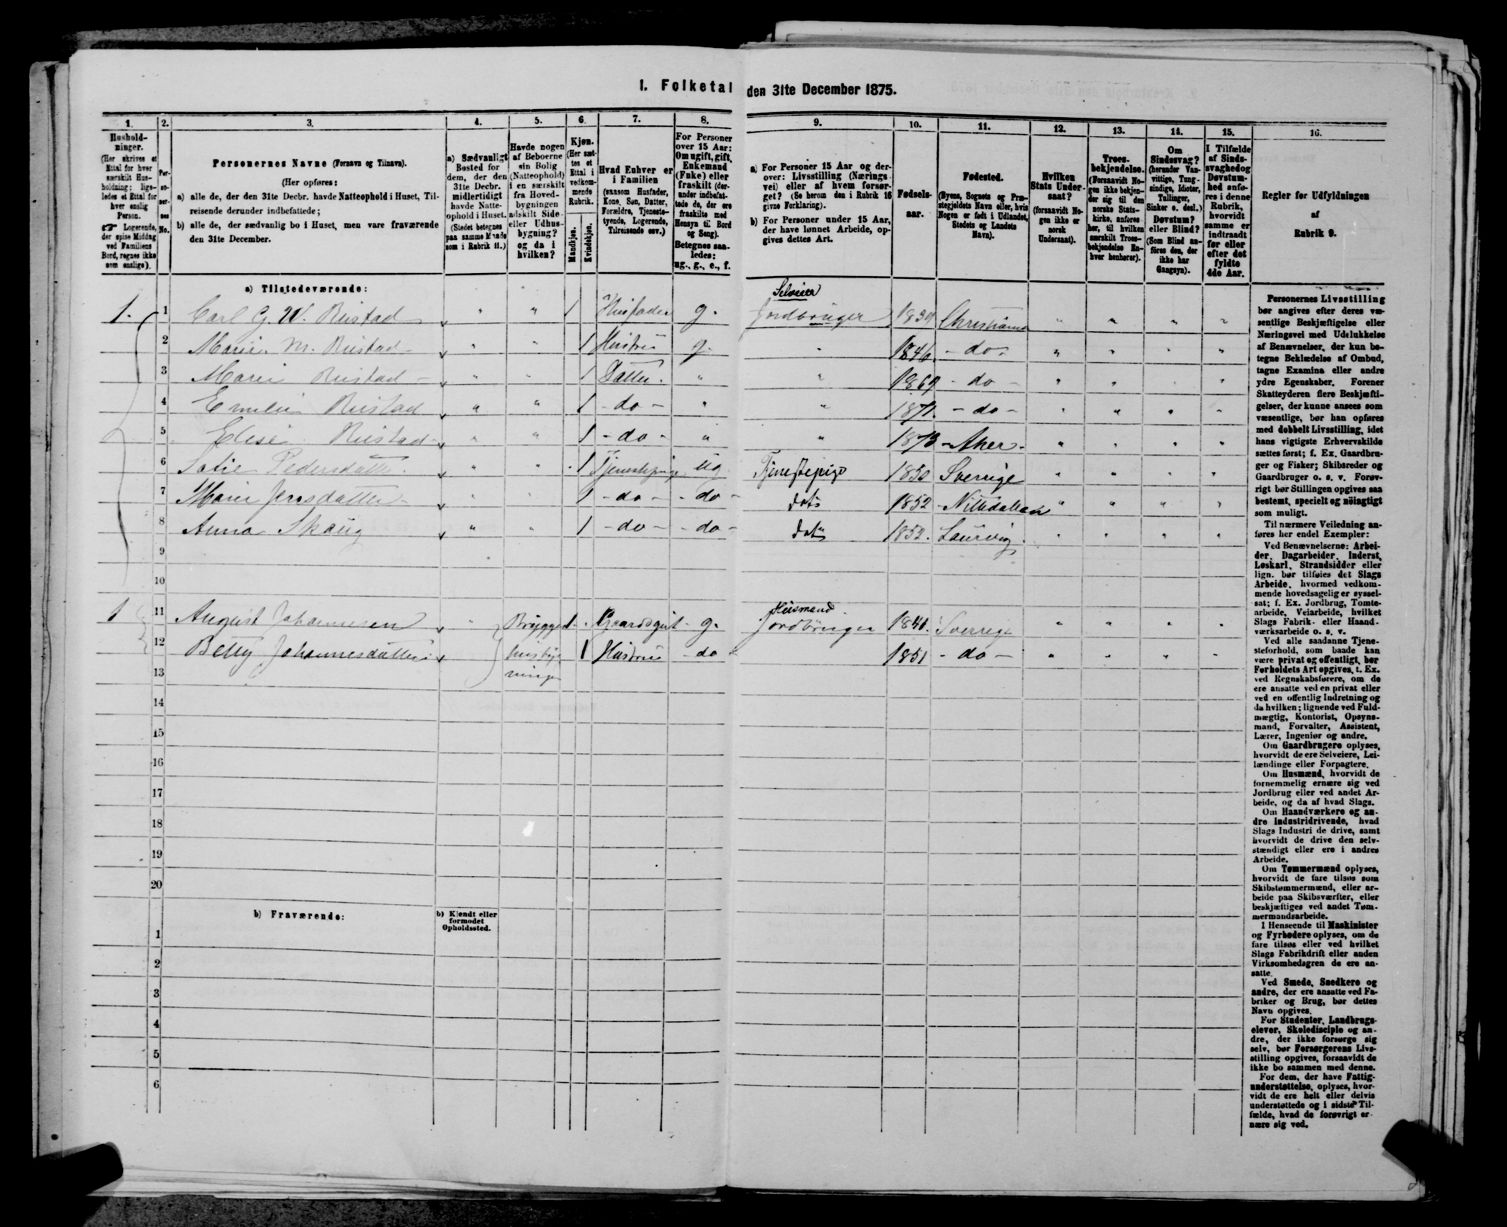 1. Folketal den 31te December 1875.
1. 2. 3. 4. 5. 6. 7. 8. 9. 10. 11. 12. 13. 14. 15. 16.
Hushold-
ninger.
(Her skrives et
Ettal for hver
særskilt Hus-
holdning; lige-
ledes et Ettal for
hver enslig
Person.
Logerende,
der spise Middag
ved Familiens
Bord, regnes ikke
som enslige).
Per-
so-
ner-
nes
No.
Personernes Navne (Fornavn og Tilnavn).
(Her opføres:
a) alle de, der den 31te Decbr. havde Natteophold i Huset, Til-
reisende derunder indbefattede;
b) alle de, der sædvanlig bo i Huset, men vare fraværende
den 31te December.
a) Sædvanligt
Bosted for
dem, der den
31te Decbr.
midlertidigt
havde Natte-
ophold i Huset.
(Stedet betegnes
paa samme Maade
som i Rubrik 11.)
Havde nogen
af Beboerne
sin Bolig
(Natteophold)
i en særskilt
fra Hoved-
bygningen
adskilt Side-
eller Udhus-
bygning?
og da i
hvilken?
Kjøn.
(Her sæt-
tes et
Ettal i
vedkom-
mende
Rubrik.
Mandkjøn.
Kvindekjøn.
Hvad Enhver er
i Familien
(saasom Husfader,
Kone, Søn, Datter,
Forældre, Tjeneste-
tyende, Logerende,
Tilreisende osv.)
For Personer
over 15 Aar:
Om ugift, gift,
Enkemand
(Enke) eller
fraskilt (der-
under indbefat-
tede de, der ere
fraskilte med
Hensyn til Bord
og Seng).
Betegnes saa-
ledes:
ug., g., e., f.
a) For Personer 15 Aar og der-
over: Livsstilling (Nærings-
vei) eller af hvem forsør-
get? (Se herom den i Rubrik 16
givne Forklaring).
b) For Personer under 15 Aar,
der have lønnet Arbeide, op-
gives dettes Art.
Fødsels-
aar.
Fødested.
(Byens, Sognets og Præ-
stegjeldets Navn eller, hvis
Nogen er født i Udlandet,
Stedets og Landets
Navn).
Hvilken
Stats Under-
saat?
(forsaavidt No-
gen ikke er
norsk
Undersaat).
Troes-
bekjendelse.
(Forsaavidt No-
gen ikke bekjen-
der sig til den
norske Stats-
kirke, anføres
her, til hvilken
særskilt Troes-
bekjendelse En-
hver henhører).
Om
Sindssvag?
(herunder Van-
vittige, Tung-
sindige, Idioter,
Tullinger,
Sinker o. desl.)
Døvstum?
eller Blind?
(Som Blind an-
føres den, der
ikke har
Gangsyn).
I Tilfælde
af Sinds-
svaghed og
Døvstum-
hed anfø-
res i denne
Rubrik,
hvorvidt
samme er
indtraadt
før eller
efter det
fyldte
4de Aar.
Regler for Udfyldningen
af
Rubrik 9.
a) Tilstedeværende:
1. 1 Carl G. W. Rustad v " " 1 Husfader g. Selveier Jordbruger 1839 Christiania " " " "
2 Marie M. Rustad v " " 1 Hustru g. " 1846 - do - " " " "
3 Marie Rustad v " " 1 Datter. " " 1869 - do - " " " "
4 Emilie Rustad v " " 1 - do - " " 1871. - do - " " " "
5 Elise Rustad v " " 1 - do - " " 1873 Aker. " " " "
6 Sofie Pedersdatter. v " " 1 Tjenestepige ug. Tjenestepige 1850 Sverrige " " " "
7 Marie Jensdatter v " " 1 - do - - do - dots 1852 Nittedalen " " " "
8 Anna Skaug v " " 1 - do - - do - dots 1852. Laurvig. " " " "
9
10
1 11 August Johannesen v " Bryggerhusbygningen 1 Gaardsgut g. Husmand. Jordbruger 1846. Sverrige " " " "
12 Betty Johannesdatter v " 1 Hustru - do " 1851 - do - " " " "
13
14
15
16
17
18
19
20
b) Fraværende:
b) Kjendt eller
formodet
Opholdssted.
1
2
3
4
5
6
Personernes Livsstilling
bør angives efter deres væ-
sentlige Beskjæftigelse eller
Næringsvei med Udelukkelse
af Benævnelser, der kun be-
tegne Beklædelse af Ombud,
tagne Examina eller andre
ydre Egenskaber. Forener
Skatteyderen flere Beskjæfti-
gelser, der kunne ansees som
væsentlige, bør han opføres
med dobbelt Livsstilling, idet
hans vigtigste Erhvervskilde
sættes først; f. Ex. Gaardbru-
ger og Fisker; Skibsreder og
Gaardbruger o. s. v. Forøv-
rigt bør Stillingen opgives saa
bestemt, specielt og nøiagtigt
som muligt.
Til nærmere Veiledning an-
føres her endel Exempler:
Ved Benævnelserne: Arbei-
der, Dagarbeider, Inderst,
Løskarl, Strandsidder eller
lign. bør tilføies det Slags
Arbeide, hvormed vedkom-
mende hovedsagelig er syssel-
sat; f. Ex. Jordbrug, Tomte-
arbeide, Veiarbeide, hvilket
Slags Fabrik- eller Haand-
værksarbeide o. s. v.
Ved alle saadanne Tjene-
steforhold, som baade kan
være privat og offentligt, bør
Forholdets Art opgives, t. Ex.
ved Regnskabsførere, om de
ere ansatte ved en privat eller
ved en offentlig Indretning og
da hvilken; lignende ved Fuld-
mægtig, Kontorist, Opsyns-
mand, Forvalter, Assistent,
Lærer, Ingeniør og andre.
Om Gaardbrugere oplyses,
hvorvidt de ere Selveiere, Lei-
lændinge eller Forpagtere.
Om Husmænd, hvorvidt de
fornemmelig ernære sig ved
Jordbrug eller ved andet Ar-
beide, og da af hvad Slags.
Om Haandværkere og an-
dre Industridrivende, hvad
Slags Industri de drive, samt
hvorvidt de drive den selv-
stændigt eller ere i andres
Arbeide.
Om Tømmermænd oplyses,
hvorvidt de fare tilsøs som
Skibstømmermænd, eller ar-
beide paa Skibsværfter, eller
beskjæftiges ved andet Tøm-
mermandsarbeide.
I Henseende til Maskinister
og Fyrbødere oplyses, om de
fare tilsøs eller ved hvilket
Slags Fabrikdrift eller anden
Virksomhedsgren de ere an-
satte.
Ved Smede, Snedkere og
andre, der ere ansatte ved Fa-
briker og Brug, bør dettes
Navn opgives.
For Studenter, Landbrugs-
elever, Skoledisciple og an-
dre, der ikke forsørge sig
selv, bør Forsørgerens Livs-
stilling opgives, forsaavidt de
ikke bo sammen med denne.
For dem, der have Fattig-
understøttelse, oplyses, hvor-
vidt de ere helt eller delvis
understøttede og i sidste Til-
fælde, hvad de forøvrigt er-
nære sig ved.